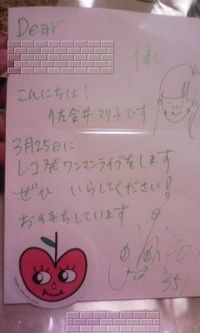 Dear
様
こんにちは！
佐合井マリ子です
3月25日に
レコ発ワンマンライブをします
ぜひ いらしてください！
お待ちしています